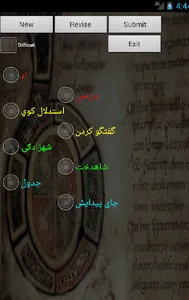 4:4
New Revise Submit
Difficult Exit
او
استدلال کوي
گفتگو کردن
شهزادگی
شاهدخت
جدول
جای پیدایش